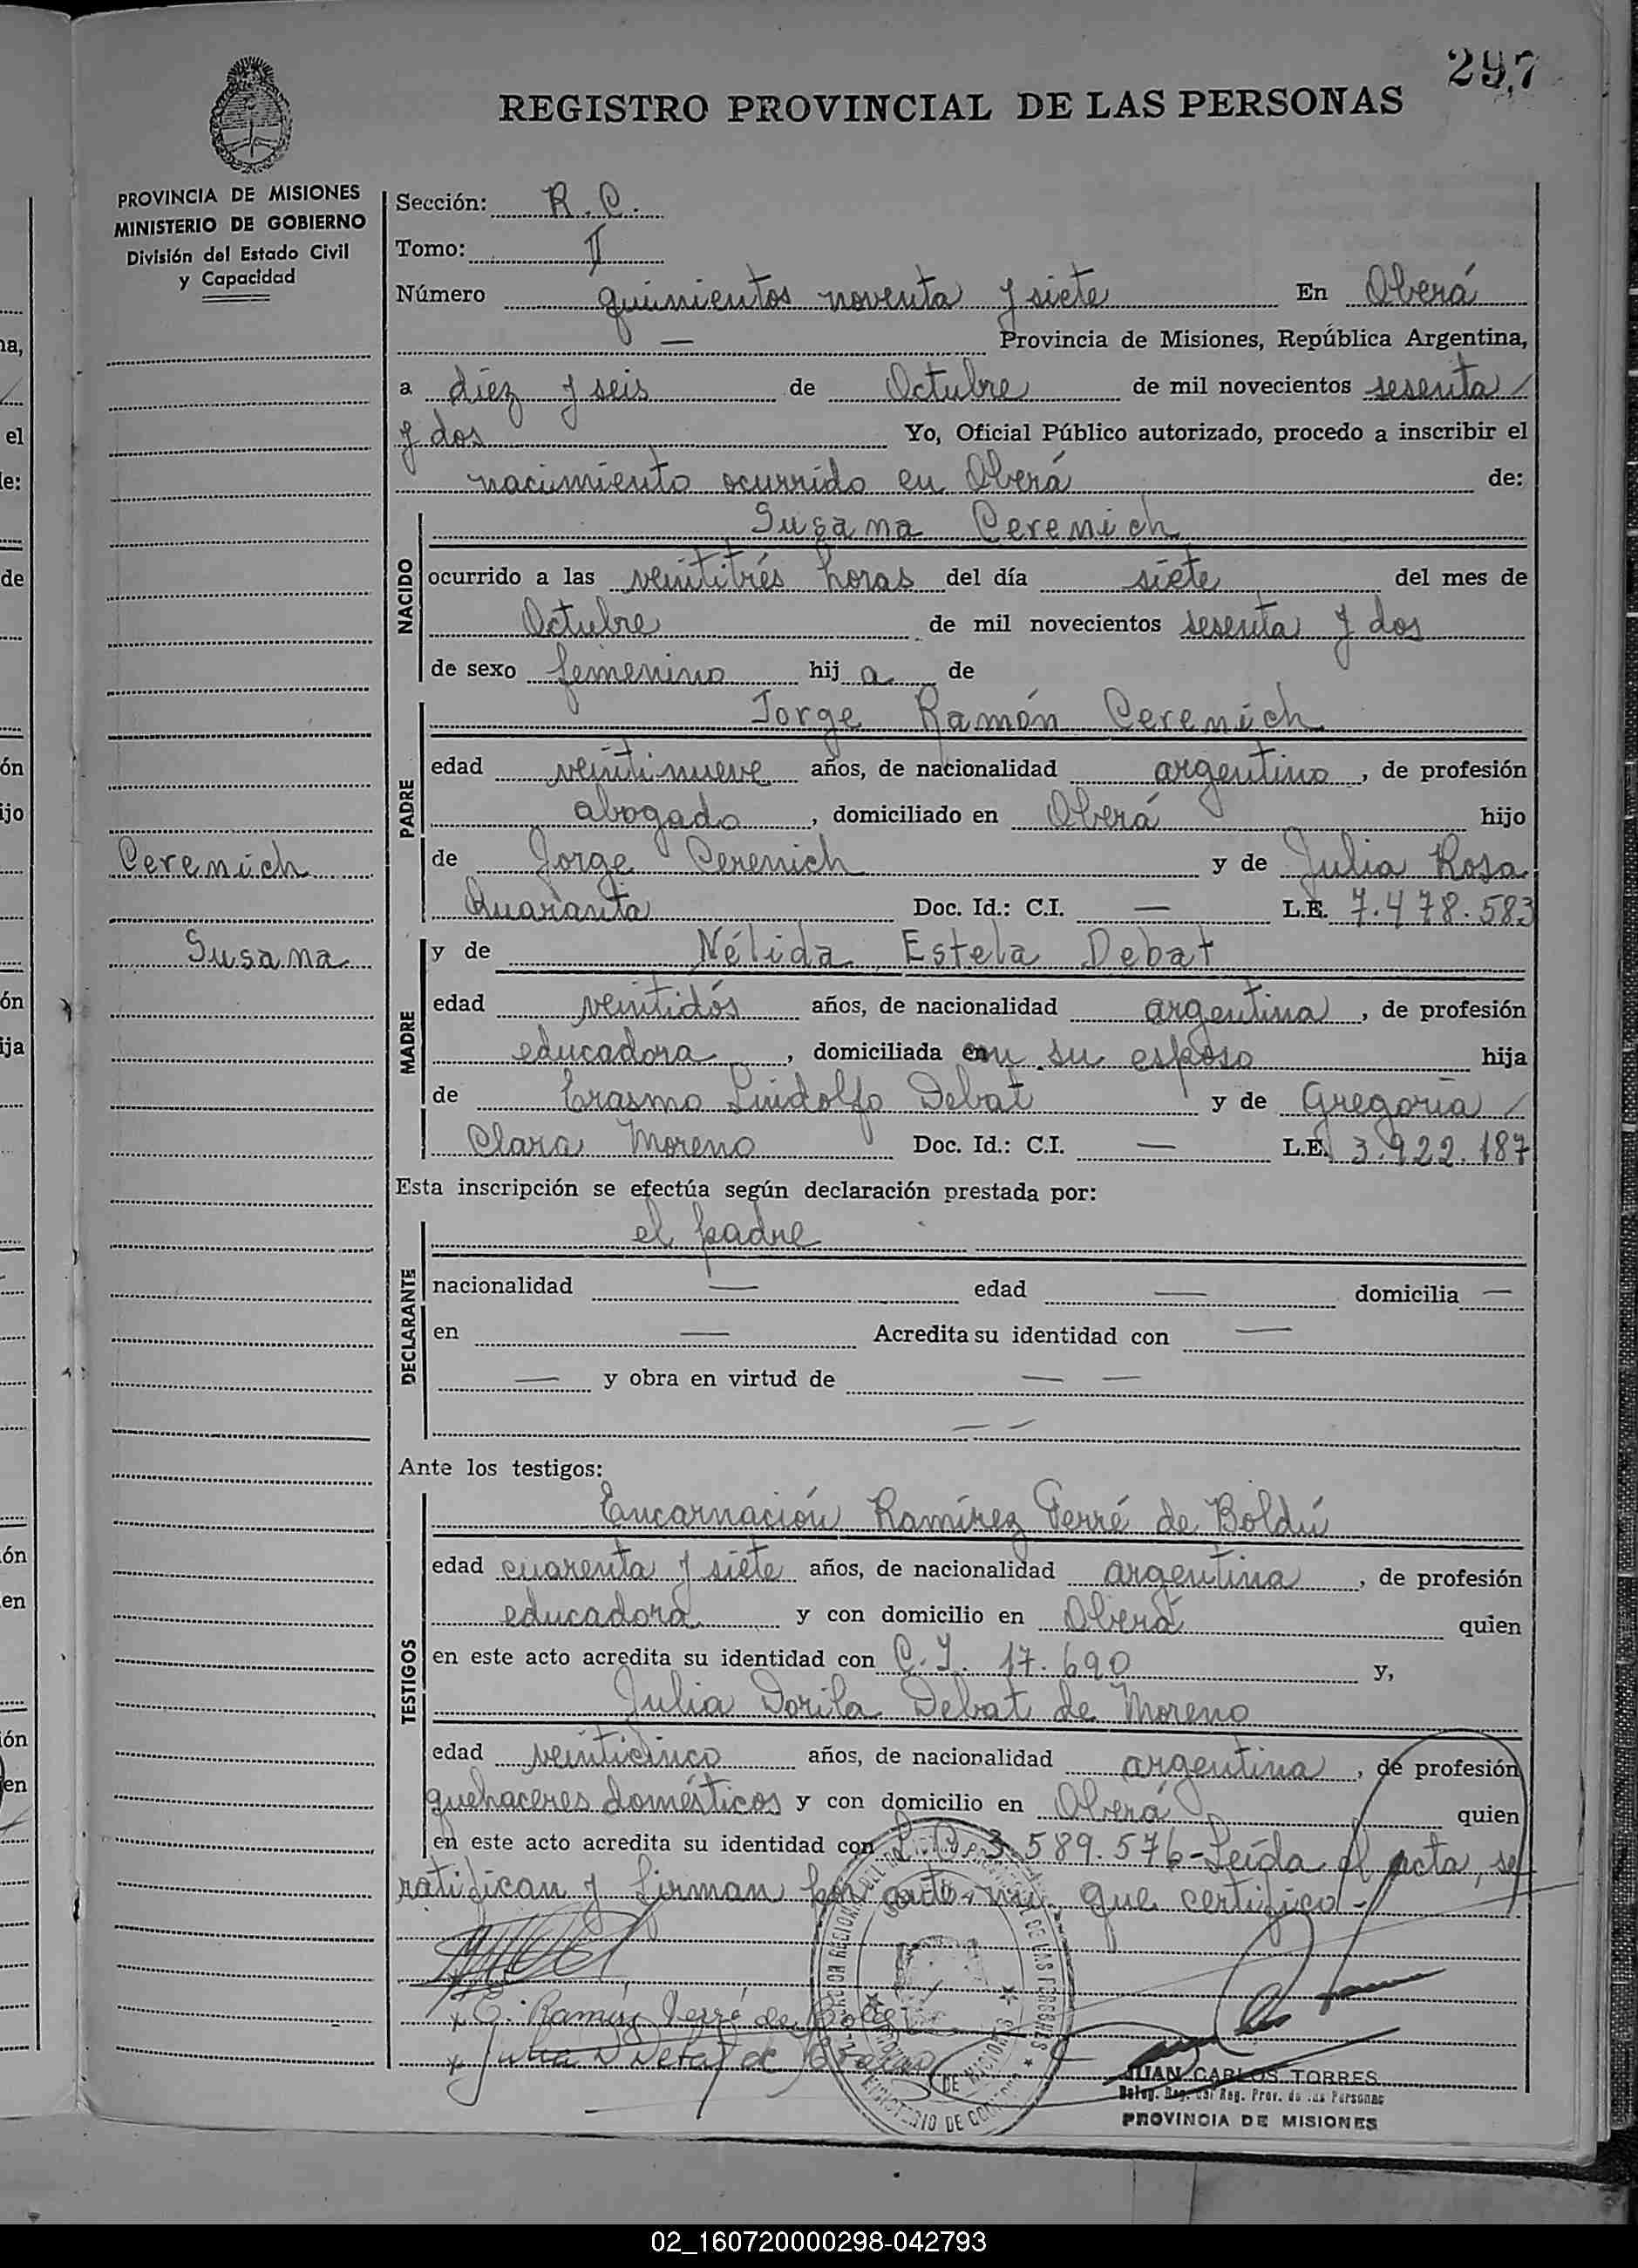 297
REGISTRO PROVINCIAL DE LAS PERSONAS
PROVINCIA DE MISIONES
MINISTERIO DE GOBIERNO
División del Estado Civil
y Capacidad
Sección: R. C.
Tomo: II
Número quinientos noventa y siete En Oberá
— Provincia de Misiones, República Argentina,
a diez y seis de Octubre de mil novecientos sesenta /
y dos Yo, Oficial Público autorizado, procedo a inscribir el
nacimiento ocurrido en Oberá de:
NACIDO
Susana Cerenich
ocurrido a las veintitrés horas del día siete del mes de
Octubre de mil novecientos sesenta y dos
de sexo femenino hij a de
PADRE
Jorge Ramón Cerenich
edad veintinueve años, de nacionalidad argentino, de profesión
abogado, domiciliado en Oberá hijo
Cerenich
de Jorge Cerenich y de Julia Rosa
Quaranta Doc. Id.: C.I. — L.E. 7.478.583
Susana
MADRE
y de Nélida Estela Debat
edad veintidós años, de nacionalidad argentina, de profesión
educadora, domiciliada en su esposo hija
de Erasmo Luidolfo Debat y de Gregoria /
Clara Moreno Doc. Id.: C.I. — L.E. 3.922.187
Esta inscripción se efectúa según declaración prestada por:
DECLARANTE
el padre
nacionalidad — edad — domicilia —
en — Acredita su identidad con —
— y obra en virtud de — —
— —
Ante los testigos:
TESTIGOS
Encarnación Ramírez Ferré de Boldú
edad cuarenta y siete años, de nacionalidad argentina, de profesión
educadora y con domicilio en Oberá quien
en este acto acredita su identidad con C.I. 17.690 y,
Julia Dorila Debat de Moreno
edad veinticinco años, de nacionalidad argentina, de profesión
quehaceres domésticos y con domicilio en Oberá quien
en este acto acredita su identidad con 3.589.576- Leída el acta, se
ratifican y firman por ante mi que certifico-
E. Ramírez Ferré de Boldú
Julia D Debat de Moreno
JUAN CARLOS TORRES
Deleg. Reg. del Reg. Prov. de las Personas
PROVINCIA DE MISIONES
MINISTERIO DE GOBIERNO
DE MISIONES
02_160720000298-042793